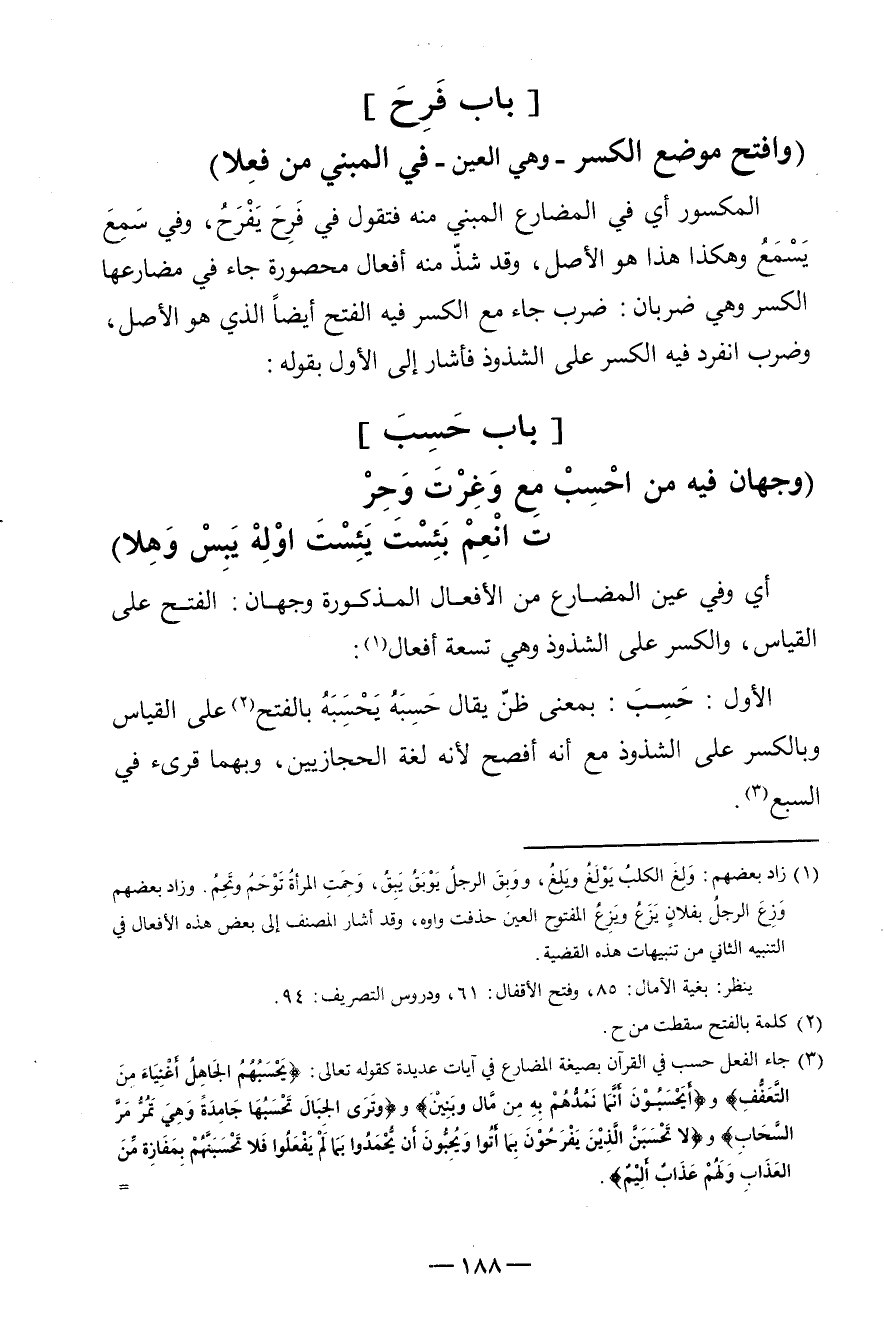 [ باب فَرِحَ ]
(وافتح موضع الكسر ـ وهي العين ـ في المبني من فعِلا)
المكسور أي في المضارع المبني منه فتقول في فَرِحَ يَفْرَحُ، وفي سَمِعَ
يَسْمَعُ وهكذا هذا هو الأصل، وقد شذّ منه أفعال محصورة جاء في مضارعها
الكسر وهي ضربان : ضرب جاء مع الكسر فيه الفتح أيضاً الذي هو الأصل،
وضرب انفرد فيه الكسر على الشذوذ فأشار إلى الأول بقوله :
[ باب حَسِبَ ]
(وجهان فيه من احْسِبْ مع وَغِرْتَ وَحِرْ
ت انْعِمْ بَئِسْتَ يَئِسْتَ اوْلِهْ يَبِسْ وَهِلا)
أي وفي عين المضارع من الأفعال المذكورة وجهان : الفتح على
القياس، والكسر على الشذوذ وهي تسعة أفعال(١):
الأول : حَسِبَ : بمعنى ظنّ يقال حَسِبَهُ يَحْسَبَهُ بالفتح(٢) على القياس
وبالكسر على الشذوذ مع أنه أفصح لأنه لغة الحجازيين، وبهما قرىء في
السبع(٣).
(١) زاد بعضهم: وَلِغَ الكلبُ يَوْلَغُ ويَلِغُ، ووَبِقَ الرجلُ يَوْبَقُ يَبِقُ، وَحِمَتِ المرأةُ تَوْحَمُ وتَحِمُ. وزاد بعضهم
وَزِعَ الرجلُ بفلانٍ يَزَعُ ويَزِعُ المفتوح العين حذفت واوه، وقد أشار المصنف إلى بعض هذه الأفعال في
التنبيه الثاني من تنبيهات هذه القضية.
ينظر: بغية الأمال: ٨٥، وفتح الأقفال: ٦١، ودروس التصريف: ٩٤.
(٢) كلمة بالفتح سقطت من ح.
(٣) جاء الفعل حسب في القرآن بصيغة المضارع في آيات عديدة كقوله تعالى: ﴿يَحْسَبُهُمُ الجَاهِلُ أَغْنِيَاءَ مِنَ
التَّعَفُّفِ﴾ و﴿أَيَحْسَبُونَ أَنَّمَا نَمُدُّهُمْ بِهِ مِن مَّال وبَنِيْنَ﴾ و﴿وتَرَى الجِبَالَ تَحْسَبُهَا جَامِدَةً وَهِيَ تَمُرُّ مَرَّ
السَّحَابِ﴾ و﴿لا تَحْسَبَنَّ الَّذِيْنَ يَفْرَحُوْنَ بِمَا أَتُوا وَيُحِبُّونَ أَن يُّحْمَدُوا بِمَا لَمْ يَفْعَلُوا فَلا تَحْسَبَنَّهُمْ بِمَفَازة مِّنَ
العَذَابِ وَلَهُمْ عَذَابٌ أَلِيْمٌ﴾.
=
— ١٨٨ —